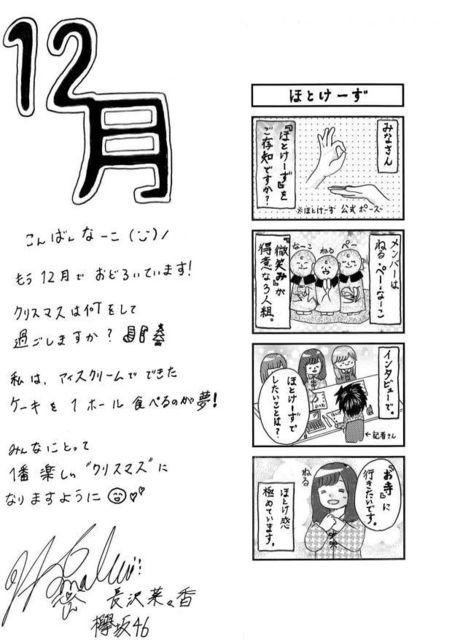 12月
こんばんなーこ(¨)ノ
もう12月でおどろいています!
クリスマスは何をして
過ごしますか?
私は、アイスクリームでできた
ケーキを1ホール食べるのが夢!
みんなにとって
1番楽しい"クリスマス"に
なりますように
長沢菜々香
欅坂46
ほとけーず
みなさん
『ほとけーず』を
ご存知ですか?
※ほとけーず 公式ポーズ
メンバーは
ねる・ぺー・なーこ
ぺー
ねる
なーこ
『微笑み』が
得意な3人組。
インタビューで。
ほとけーずで
したいことは?
←記者さん
『お寺』に
行きたいです。
ねる
ほとけ感
極めています。